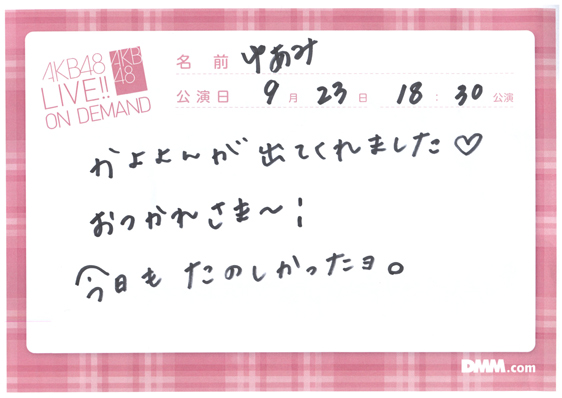 AKB48
LIVE!!
ON DEMAND
AKB
48
名前 ゆあみ
公演日 9月23日 18:30公演
かよよんが出てくれました♡
おつかれさま〜!
今日もたのしかったヨ。
DMM.com